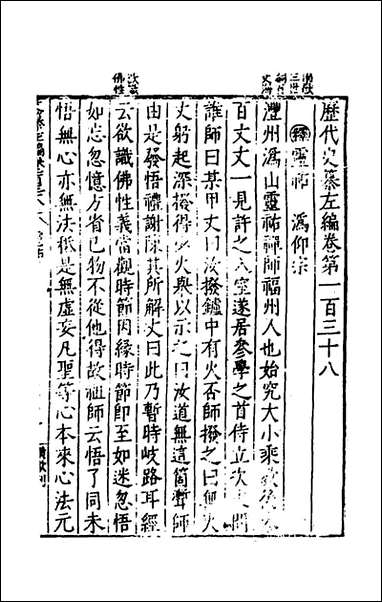 歷代史纂左編卷第一百三十八
釋 靈祐 溈仰宗
灃州溈山靈祐禪師福州人也始究大小乘教後參
百丈丈一見許之入室遂居參學之首侍立次丈問
誰師曰某甲丈曰汝撥鑪中有火否師撥之曰無火
丈躬起深撥得少火舉以示之曰汝道無這箇聻師
由是發悟禮謝陳其所解丈曰此乃暫時岐路耳經
云欲識佛性義當觀時節因緣時節即至如迷忽悟
如忘忽憶方省已物不從他得故祖師云悟了同未
悟無心亦無法秪是無虛妄凡聖等心本來心法元
佛性